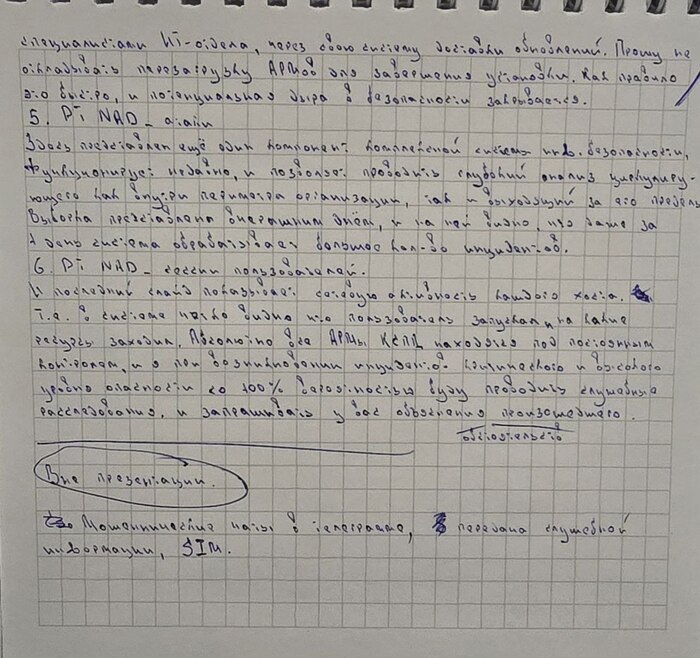 специалистами ИТ-отдела, через свою систему доставки обновлений. Прошу не
откладывать перезагрузку АРМов для завершения установки. Как правило
это быстро, и потенциальная дыра в безопасности закрывается.
5. PT NAD_ атаки
Здесь представлен ещё один компонент комплексной системы инф. безопасности,
Функционирует недавно, и позволяет проводить глубокий анализ циркулиру-
ющего как внутри периметра организации, так и выходящий за его пределы
Выборка представлена вчерашним днём, и на ней видно, что даже за
1 день система обрабатывает большое кол-во инцидентов.
6. PT NAD_ сессии пользователей.
И последний слайд показывает сетевую активность каждого хоста.
Т.е. в системе четко видно что пользователь запускал, на какие
ресурсы заходил. Абсолютно все АРМы КСПЦ находятся под постоянным
контролем, и я при возникновении инцидентов критического и высокого
уровня опасности со 100% вероятностью буду проводить служебные
расследования, и запрашивать у вас объяснения произошедшего.
обстоятельств
Вне презентации.
Мошеннические чаты в телеграмме, передача служебной
информации, SIM.